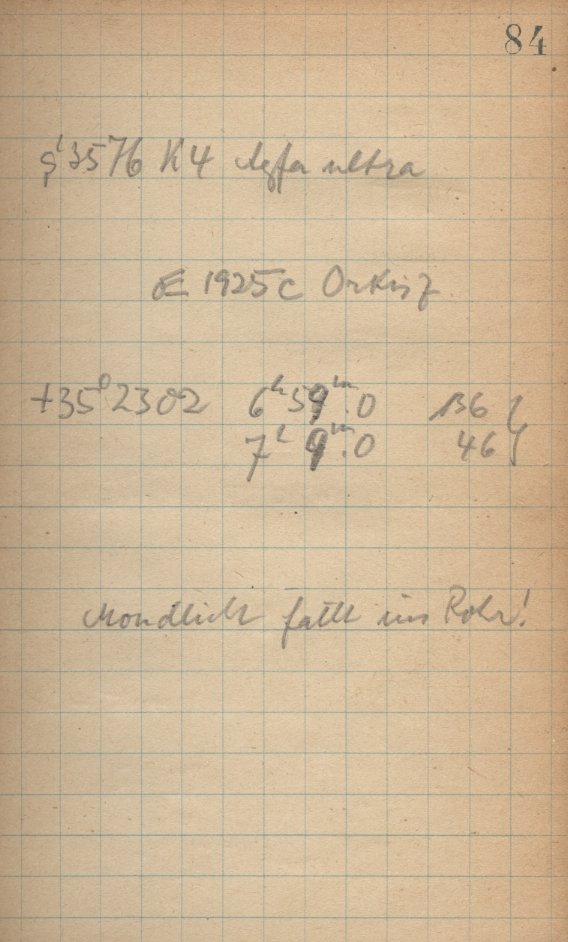 84
3576 K4 Agfa ultra
1925c Orkisz
+35° 2302 6h 59m.0 B6
7h 9m.0 46
Mondlicht fällt ins Rohr!